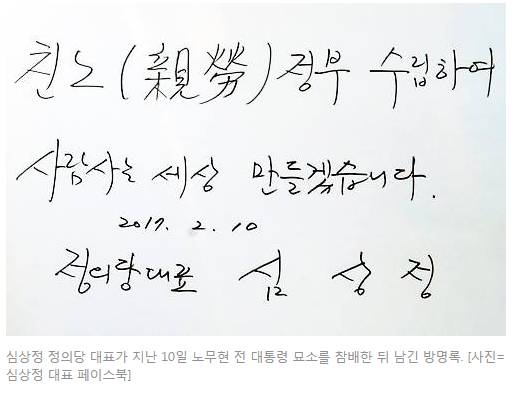 친노(親勞)정부 수립하여
사람사는 세상 만들겠습니다.
2017. 2. 10
정의당대표 심 상 정
심상정 정의당 대표가 지난 10일 노무현 전 대통령 묘소를 참배한 뒤 남긴 방명록. [사진=
심상정 대표 페이스북]